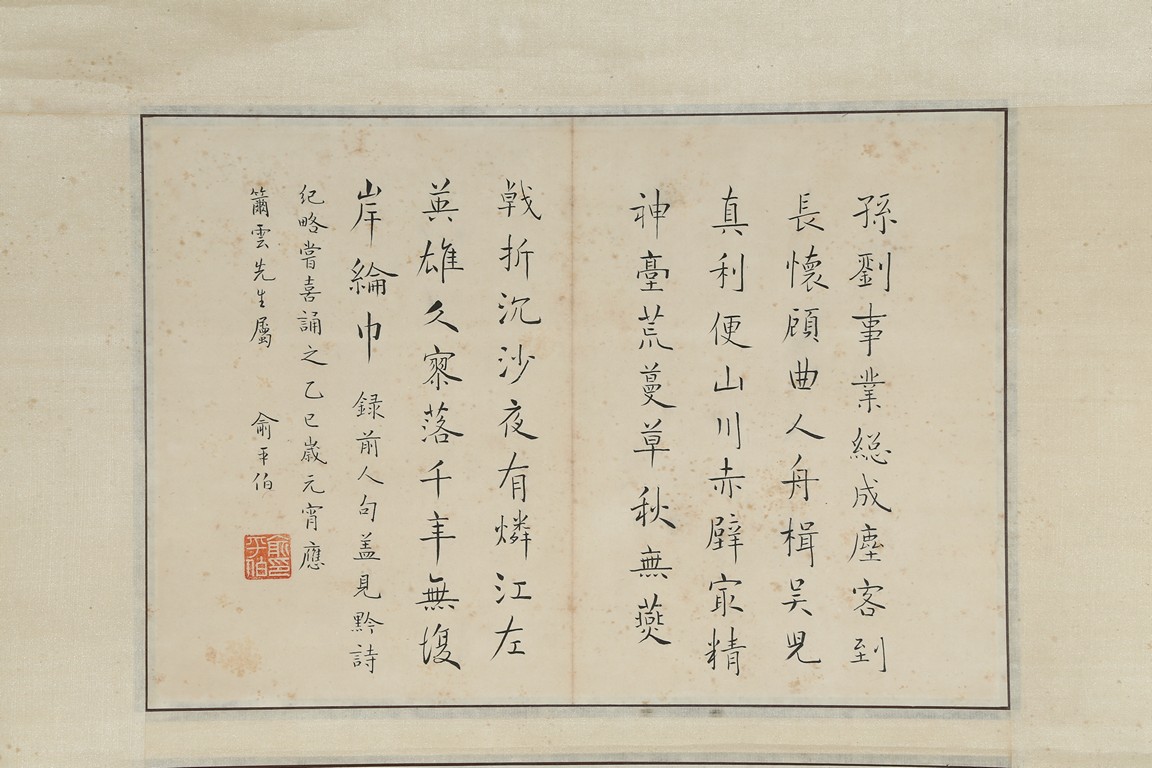 孫劉事業総成塵客到
長懷顧曲人舟楫吴兒
真利便山川赤壁㝡精
神臺荒蔓草秋無燕
戟折沉沙夜有燐江左
英雄久寥落千年無復
岸綸巾 録前人句盖見黔詩
紀略嘗喜誦之乙巳歲元宵應
籋雲先生屬 俞平伯
俞印平伯